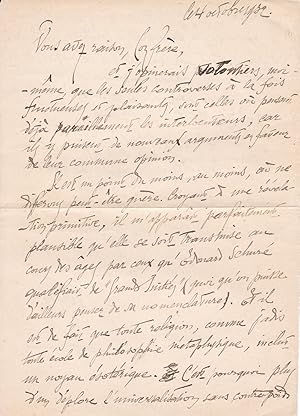 le 4 octobre 1932.
Vous avez raison, Confrère,
et j'opinerais volontiers, moi-
même, que les seules controverses à la fois
fructueuses et plaisantes, sont celles où pensent
déjà pareillement les interlocuteurs, car
ils y puisent de nouveaux arguments en faveur
de leur commune opinion.
Il est un point du moins, où nous ne
différons peut-être guère. Croyant à une révéla-
tion primitive, il m'apparaît parfaitement
plausible qu'elle se soit transmise au
cours des âges par ceux qu'Édouard Schuré
qualifiait de "Grands Initiés" (quoi qu'on puisse
d'ailleurs penser de sa nomenclature). Et il
est de fait que toute religion, comme jadis
toute école de philosophie métaphysique, inclut
un noyau ésotérique. C'est pourquoi plus
d'un déplore l'universalisation sans contrepoids